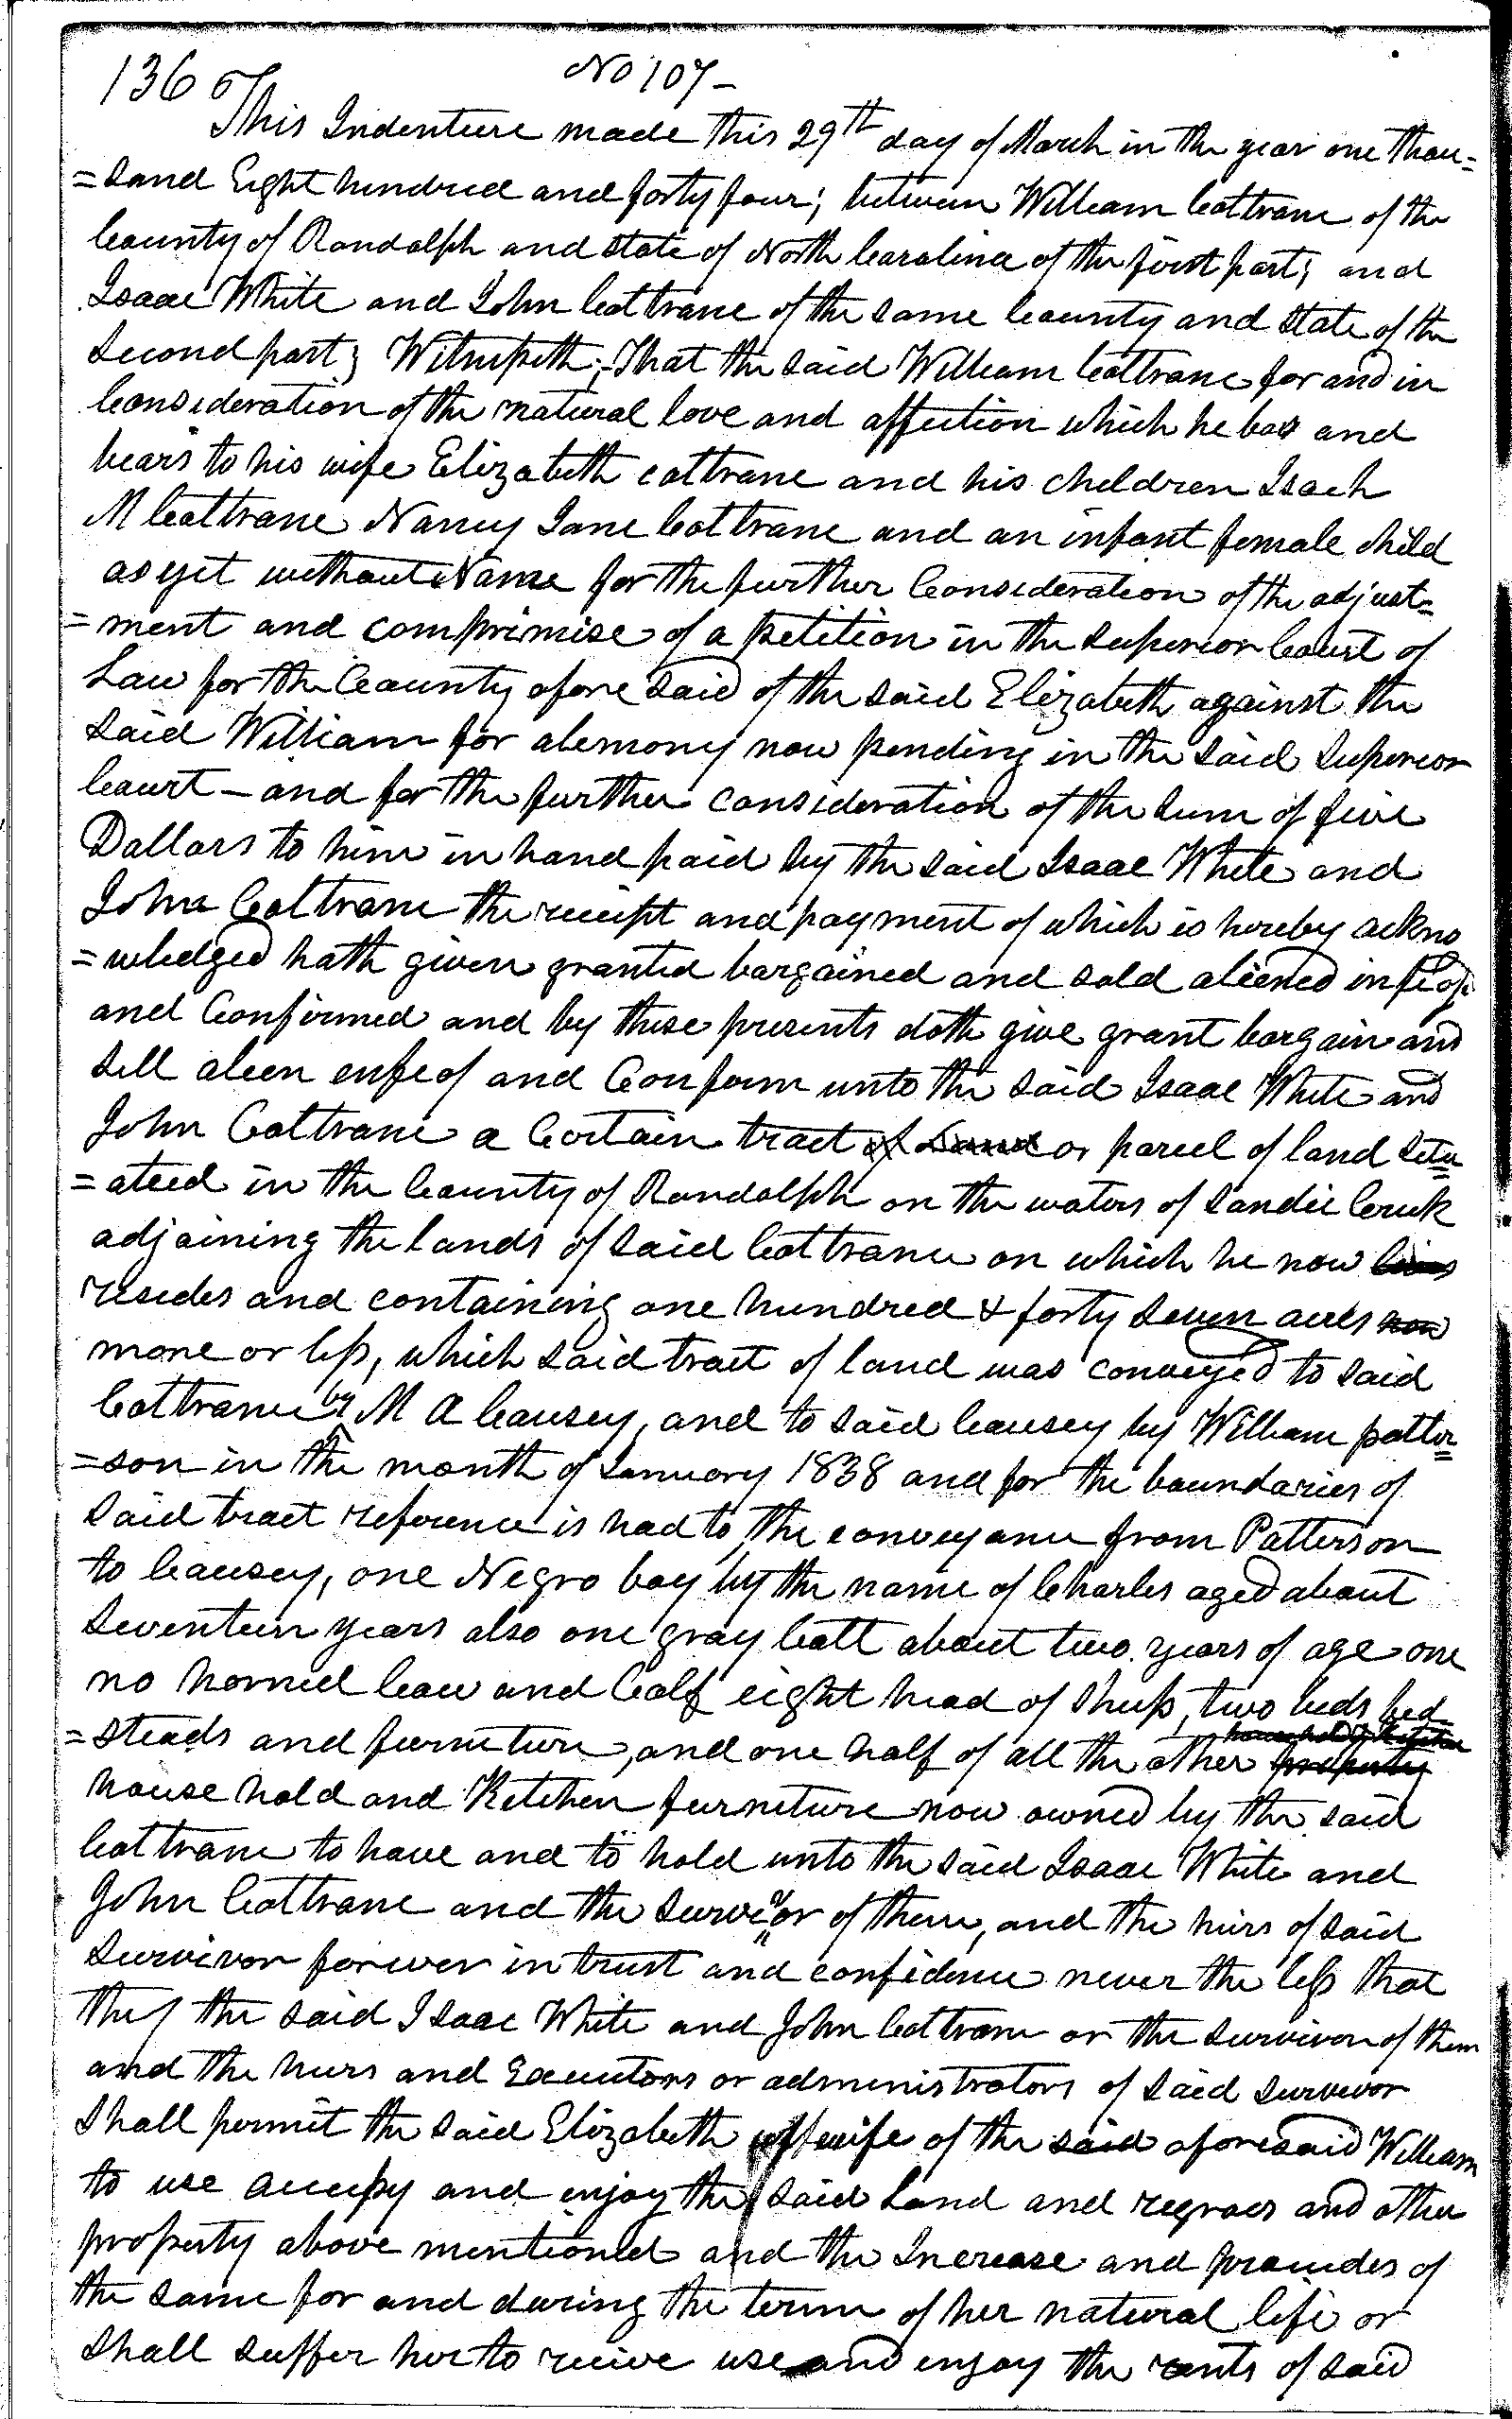 136 No 107-
This Indenture made this 29th day of March in the year one thou=
=sand Eight hundred and forty four; between William Coltrane of the
County of Randolph and state of North Carolina of the first part; and
Isaac White and John Coltrane of the same County and state of the
second part; Witnesseth; That the said William Coltrane for and in
Consideration of the natural love and affection which he has and
bears to his wife Elizabeth coltrane and his children Isach
M Coltrane Nancy Jane Coltrane and an infant female child
as yet without Name for the further Consideration of the adjust=
=ment and compromise of a petition in the Superior Court of
Law for the County afore said of the said Elizabeth against the
said William for alemony now pending in the said Superior
Court - and for the further consideration of the sum of five
Dollars to him in hand paid by the said Isaac White and
John Coltrane the receipt and payment of which is hereby ackno
=wledged hath given granted bargained and sold aliened infeof
and Confirmed and by these presents doth give grant bargain and
sell aleen enfeof and Confirm unto the said Isaac White and
John Coltrane a Certain tract of Land or parcel of land situ
=ated in the County of Randolph on the waters of Sandie Creek
adjoining the lands of said Coltrane on which he now lives
resides and containing one hundred & forty seven acres now
more or less, which said tract of land was conveyed to said
Coltrane by M A Causey, and to said Causey by William patter
=son in the month of January 1838 and for the boundaries of
said tract reference is had to the conveyance from Patterson
to Causey, one Negro boy by the name of Charles aged about
seventeen years also one gray Colt about two years of age one
no horned Cow and Calf eight head of sheep, two beds bed
=steads and furniture, and one half of all the other household & Kitchen property
house hold and Kitchen furneture now owned by the said
Coltrane to have and to hold unto the said Isaac White and
John Coltrane and the survivor of them, and the heirs of said
Survivor forever in trust and confidence never the less that
they the said Isaac White and John Coltrane or the survivor of them
and the heirs and Executors or administrators of said survivor
Shall permit the said Elizabeth wife of the said aforesaid William
to use occupy and enjoy the said Land and negroes and other
property above mentioned and the Increase and proceedes of
the same for and during the term of her natural life or
shall suffer her to receive use and enjoy the rents of said